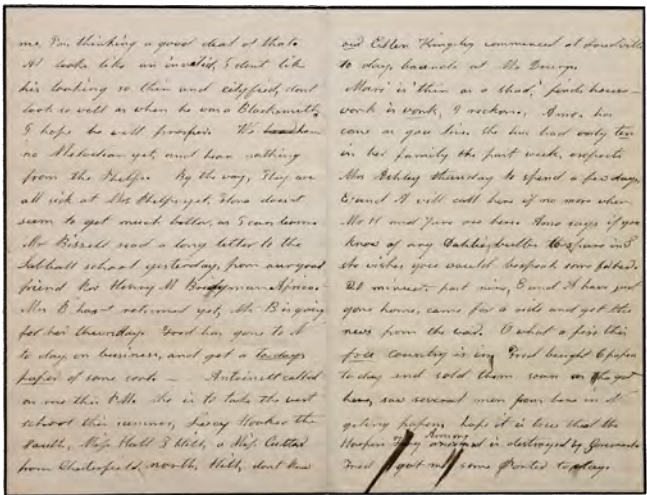 me. I'm thinking a good deal of that.
Al looks like an invalid, I dont like
his looking so thin and cityfied, dont
look so well as when he was a Blacksmith,
I hope he will prosper. We have
no Melodeon yet, and hear nothing
from the Phelps. By the way, They are
all sick at Mrs Phelps yet, doesn't
seem to get much better, as I can learn
Mr Bissell read a long letter to the
Sabbath school yesterday, from our good
friend Rev Henry M Bridgman Africa.
Mrs B hasn't returned yet, Mr B is going
for her thursday. Fred has gone to N
to day on business, and get a to days
paper of some sort — Antoinett called
on me this P.M. She is to take the west
school this summer, Lucy Hooker the
South, Miss Hall S Hill, a Miss
from Chesterfield, north, Hill, dont know
and Ellen Kingsley commenced at
to day, boards at Mr
Mary is "thin as a shad," finds house-
work is work, I reckon. Anna has
come as you live. She has had only ten
in her family the past week, expects
Mrs Ashley thursday to spend a few days,
E and A will call here if no more when
Mr H and are here. Anna says if you
know of any Dahlia bulbs to spare in S
she wishes you would bespeak some for her.
20 minutes past nine, E and A have just
gone home, came for a ride and get the
news from the war. O what a fix this
free country is in, Fred bought 6 papers
to day and sold them soon as he got
here, saw several men from here in N
geting papers, hope it is true that the
Harpers Ferry Armory is destroyed by
Fred got me some to day